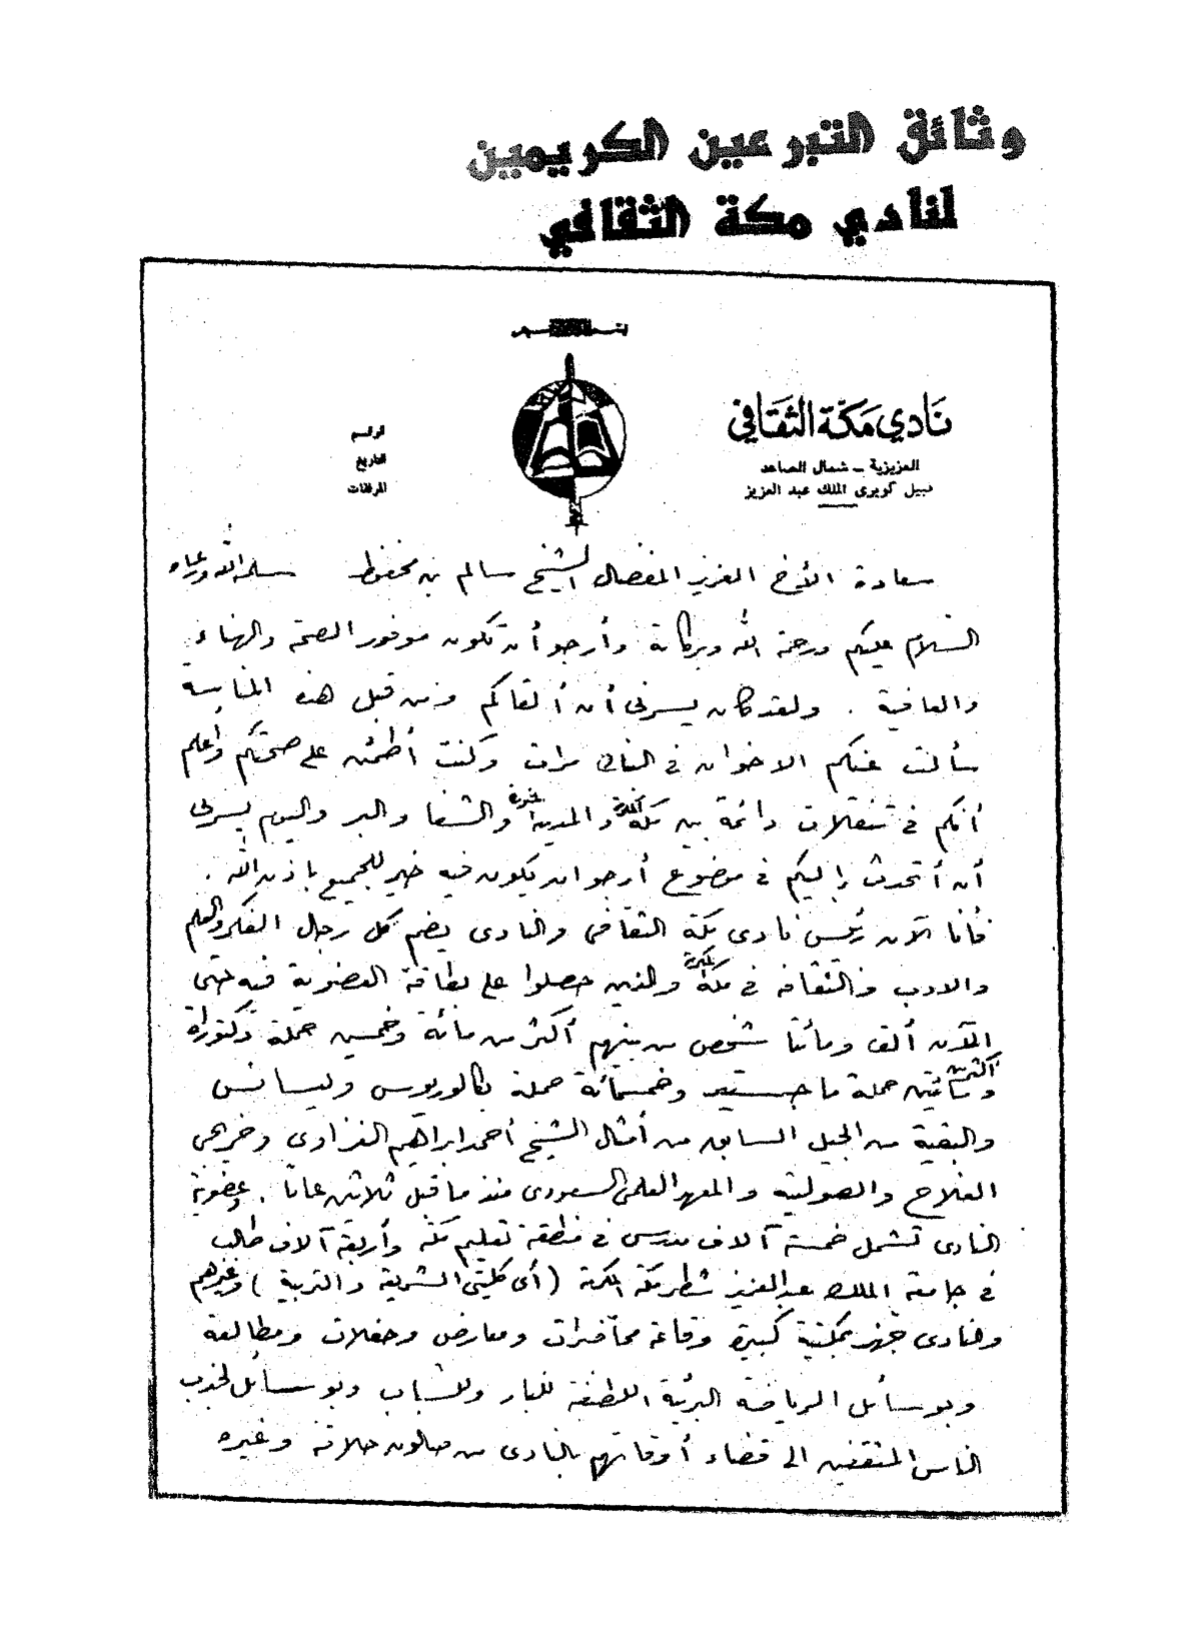 وثائق التبرعين الكريمين
لنادي مكة الثقافي
نادي مكة الثقافي
العزيزية – شمال الصاعد
قبيل كوبرى الملك عبد العزيز
الرقم
التاريخ
المرفقات
سعادة الأخ العزيز المفضال الشيخ سالم بن محفوظ سلمه الله ورعاه
السلام عليكم ورحمة الله وبركاته وأرجو أن تكون موفور الصحة والهناء
والعافية . ولقد كان يسرنى أن ألقاكم ومن قبل هذه المناسبة
سألت عنكم الاخوان فى مرات وكنت أطمئن على صحتكم وأعلم
أنكم فى تنقلات دائمة بين مكة المكرمة والمدينة المنورة والشفا والبر واليوم يسرنى
أن أتحدث إليكم فى موضوع أرجو ان يكون فيه خير للجميع باذن الله .
فأنا الآن رئيس نادى مكة الثقافى والنادى يضم كل رجال الفكر والعلم
والادب والثقافة فى مكة المكرمة والذين حصلوا على بطاقة العضوية فيه حتى
الآن ألف ومأتا شخص من بينهم أكثر من مائة وخمسين حملة دكتوراة
وأكثر من مائتين حملة ماجستير وخمسمائة حملة بكالوريوس وليسانس
والبقية من الجيل السابق من أمثال الشيخ أحمد ابراهيم الغزاوى وخريجى
الفلاح والصولتية والمعهد العلمى السعودى منذ ما قبل ثلاثين عاماً . وعضوية
النادى تشمل خمسة آلاف مدرس فى منطقة تعليم مكة وأربعة آلاف طالب
فى جامعة الملك عبد العزيز شطر مكة المكرمة ( أى كليتى الشريعة والتربية ) وغيرهم
والنادى مجهز بمكتبة كبيرة وقاعة محاضرات ومعارض وحفلات ومطالعة
وبوسائل الرياضة البرئية اللطيفة للكبار وللشباب وبوسائل لجذب
الناس المثقفين الى قضاء أوقاتهم بالنادى من صالون حلاقة وغيره